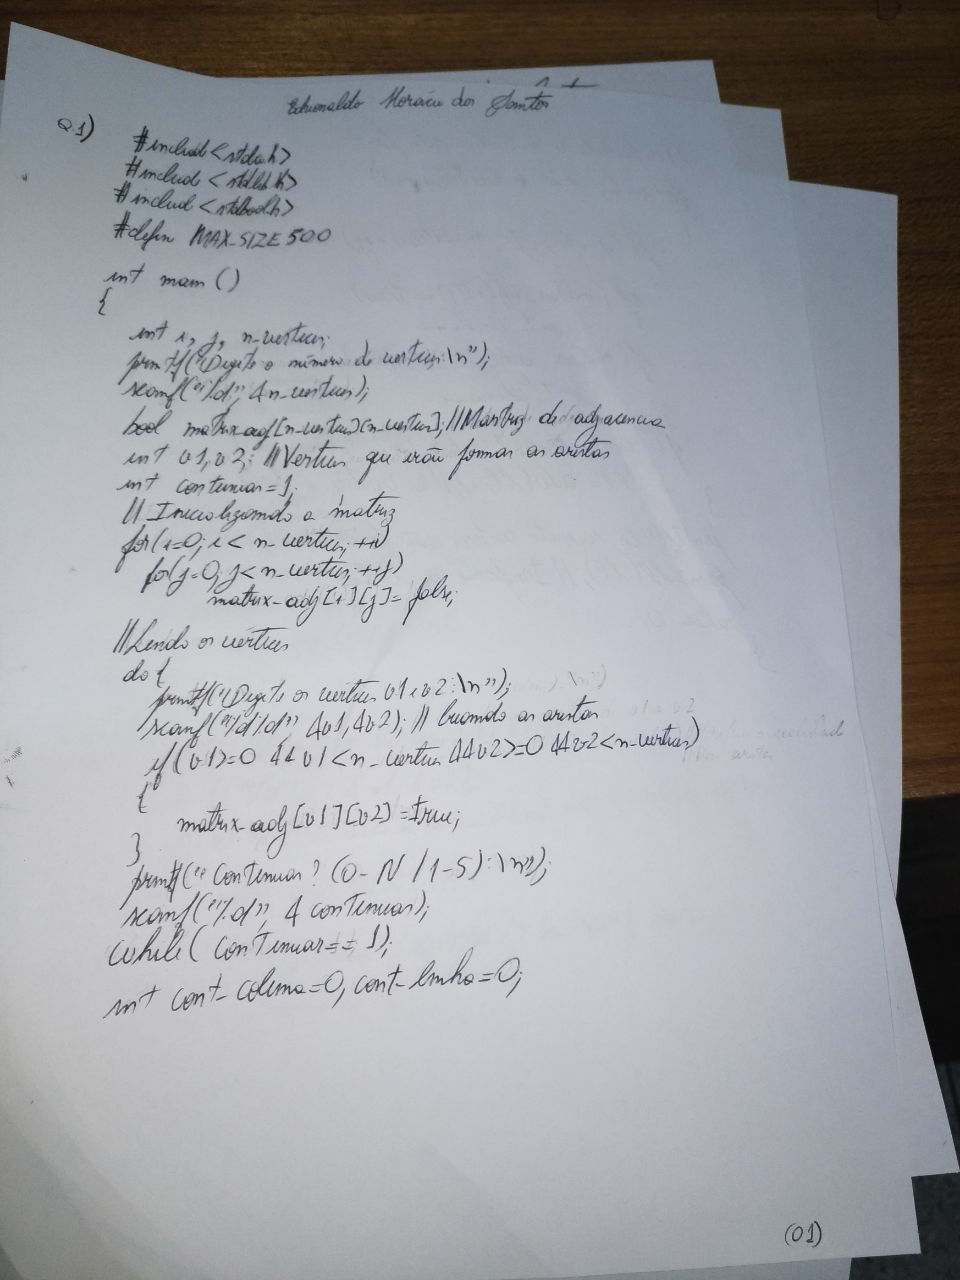 dos Santos
Q1)
#includ<stdio.h>
#includ <stdlib.h>
#includ <stdbool.h>
#defin MAX_SIZE 500
int main ()
{
int i, j, n_vertices;
printf("Digite o número de vertices:\n");
scanf("%d", &n_vertices);
bool matrix_adj[n_vertices][n_vertices]; //Matriz de adjacencia
int v1, v2; //Vertices que irão formar as arestas
int continuar=1;
//Inicializando a matriz
for(i=0; i< n_vertices; ++i)
for(j=0; j< n_vertices; ++j)
matrix_adj[i][j]=false;
//Lendo os vertices
do {
printf("Digite os vertices v1 e v2:\n");
scanf("%d%d", &v1,&v2); // as arestas
if(v1>=0 && v1<n_vertices &&v2>=0 &&v2<n_vertices)
{
matrix_adj[v1][v2]=true;
}
printf("Continuar? (0-N/1-S):\n");
scanf("%d", &continuar);
while( continuar==1);
int cont_coluna=0, cont_linha=0;
(01)